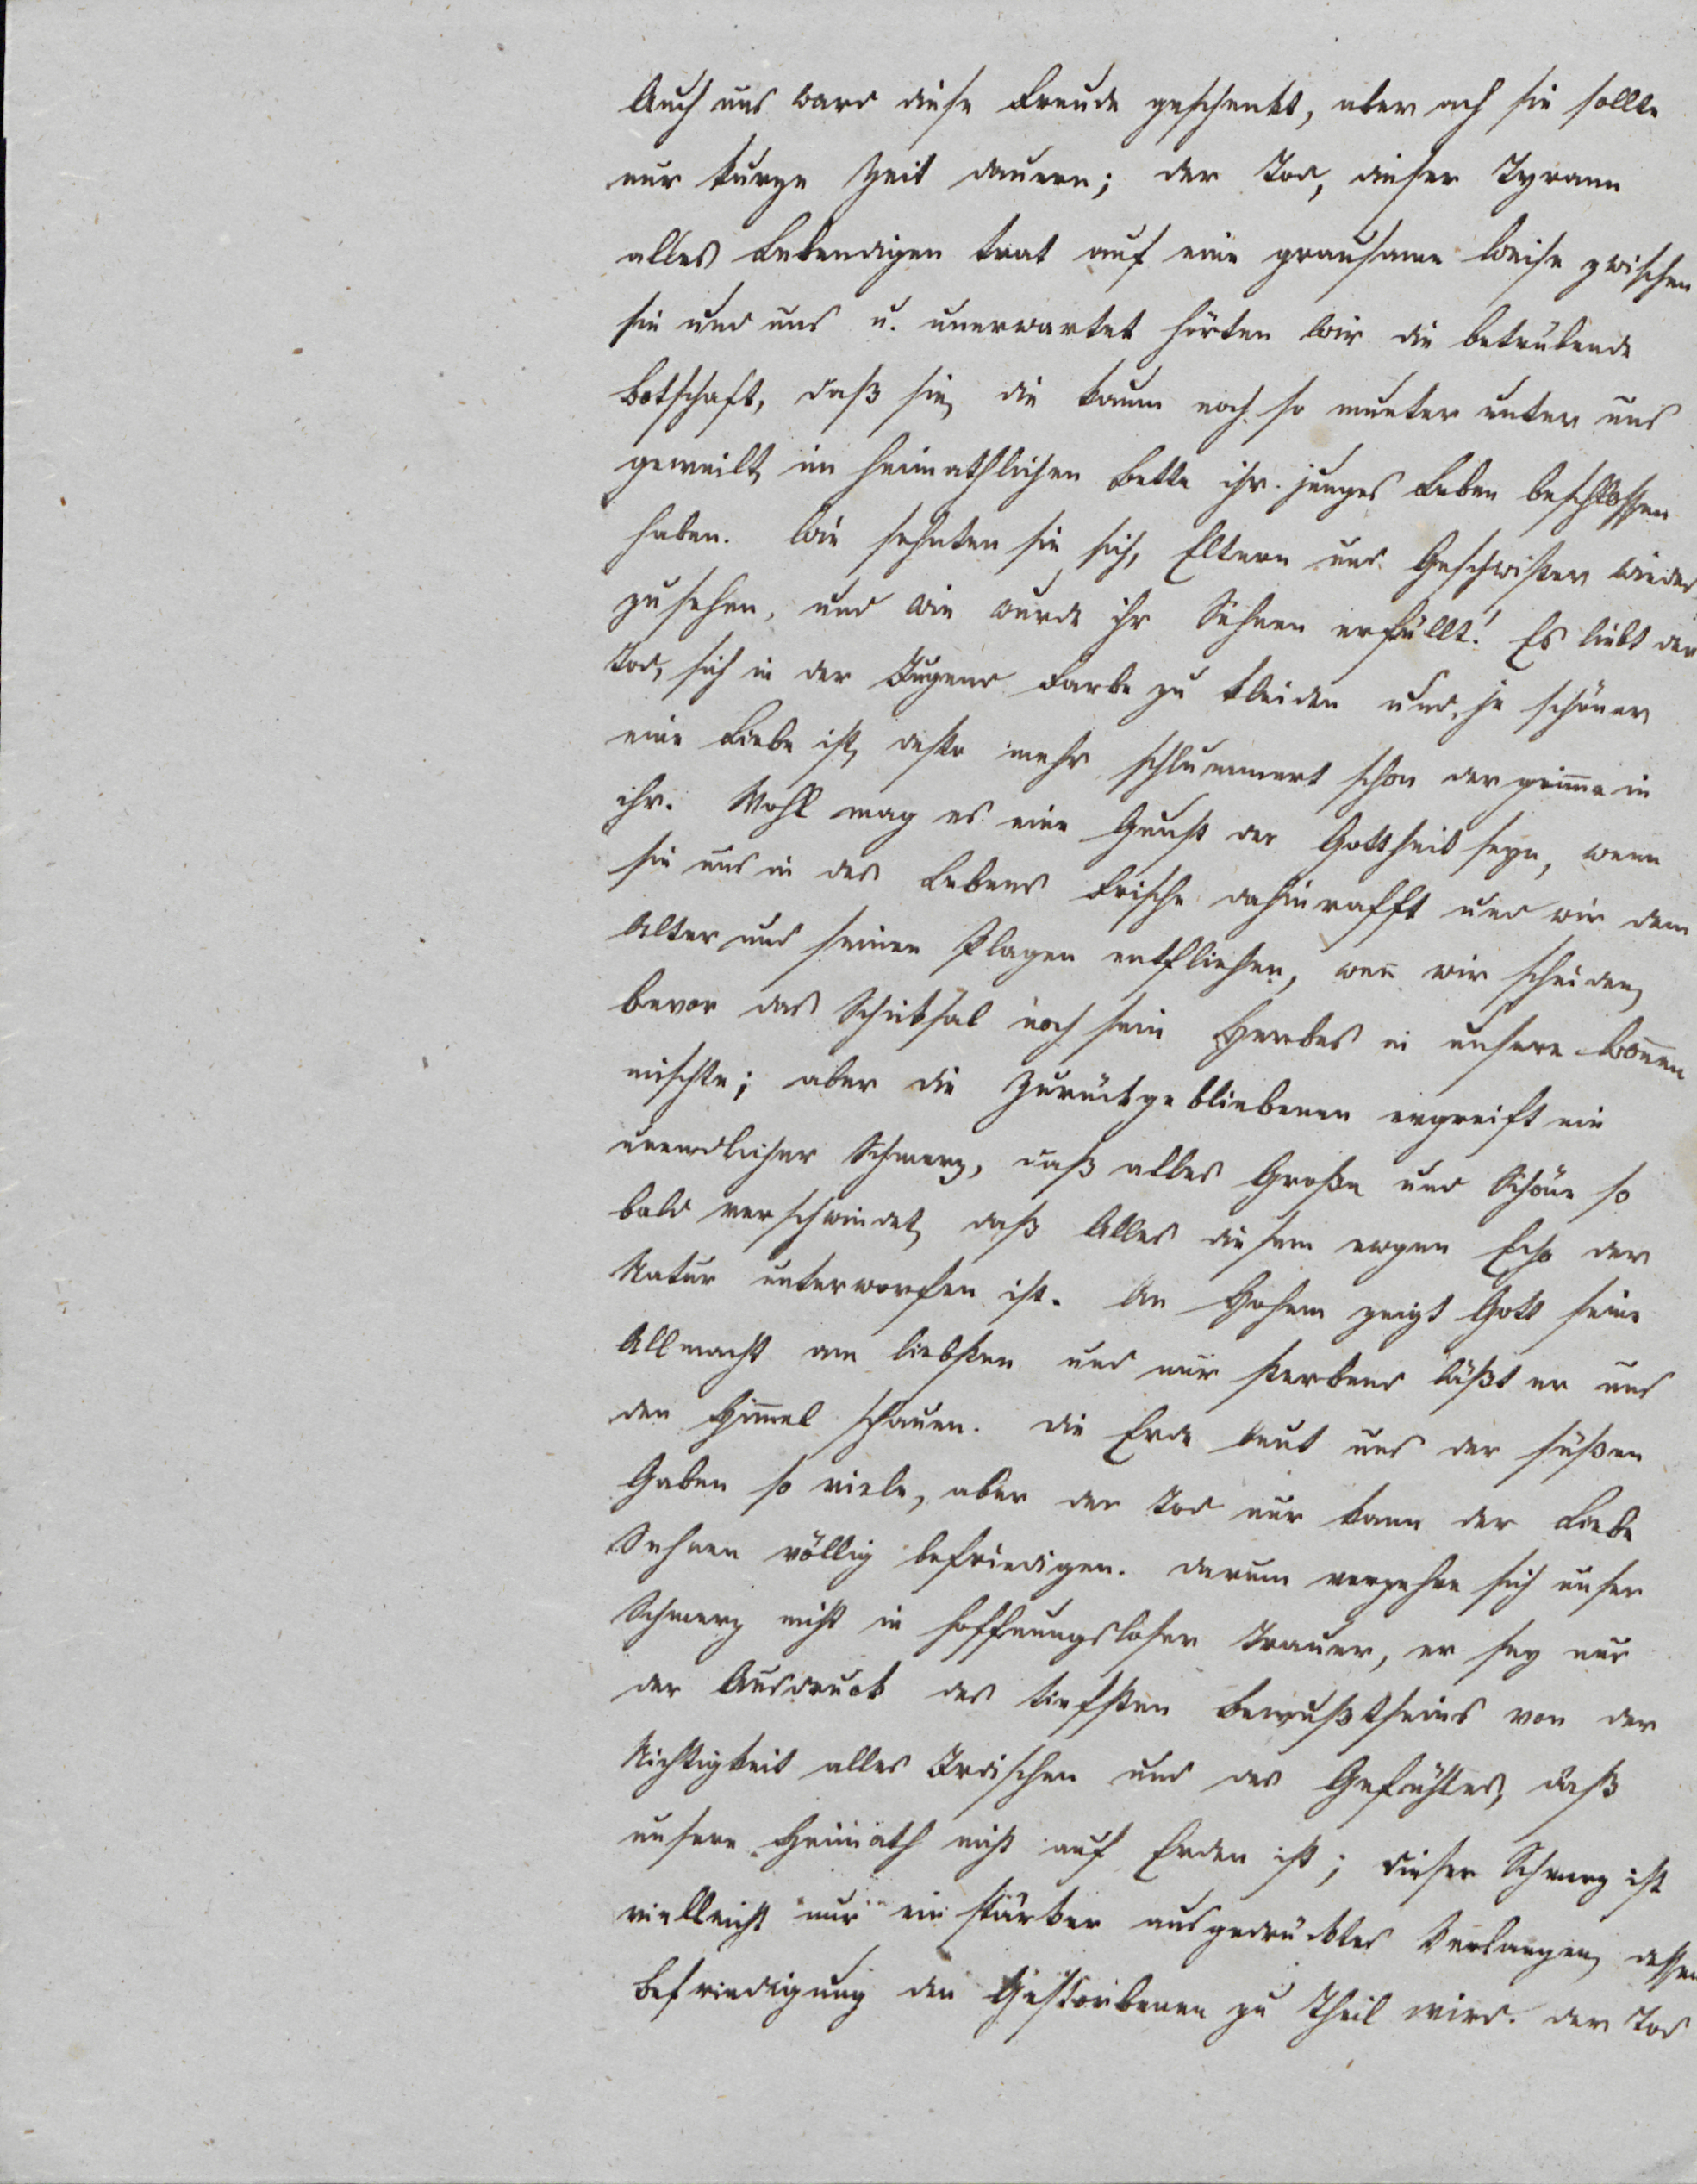 Auch uns ward diese Freude geschenkt, aber ach sie sollte
nur kurze Zeit dauern; der Tod, dieser Tyrann
alles Lebendigen trat auf eine grausame Weise zwischen
sie und uns u. unerwartet hörten wir die betrübende
Botschaft, daß sie, die kaum noch so munter unter uns
geweilt, im heimathlichen Bette ihr junges Leben beschlossen
haben. Wie sehnten sie sich, Eltern und Geschwister wieder
zusehen, und wie wurde ihr Sehnen erfüllt! Es liebt der
Tod, sich in der Jugend Farbe zu kleiden und, je schöner
eine Liebe ist, desto mehr schlummert schon der in
ihr. Wohl mag es eine Gunst der Gottheit seyn, wenn
sie uns in des Lebens Frische dahinrafft und wir dem
Alter und seinen Plagen entfliehen, wen̄ wir scheiden,
bevor das Schicksal noch sein Herbes in unsere Won̄en
mischte; aber die Zurückgebliebenen ergreift ein
unendlicher Schmerz, daß alles Große und Schöne so
bald verschwindet, daß Alles diesem ewgen Echo der
Natur unterworfen ist. An Hohem zeigt Gott seine
Allmacht am liebsten und nur sterbend läßt er uns
den Him̄el schauen. Die Erde beut uns der süßen
Gaben so viele, aber der Tod nur kann der Liebe
Sehnen völlig befriedigen. Darum verzehre sich unser
Schmerz nicht in hoffnungsloser Trauer, er sey nur
der Ausdruck des tiefsten Bewußtseins von der
Nichtigkeit alles Irdischen und des Gefühles, daß
unsere Heimath nicht auf Erden ist; dieser Schmerz ist
vielleicht nur ein stärker ausgedrücktes Verlangen, dessen
Befriedigung den Gestorbenen zu Theil wird. Der Tod